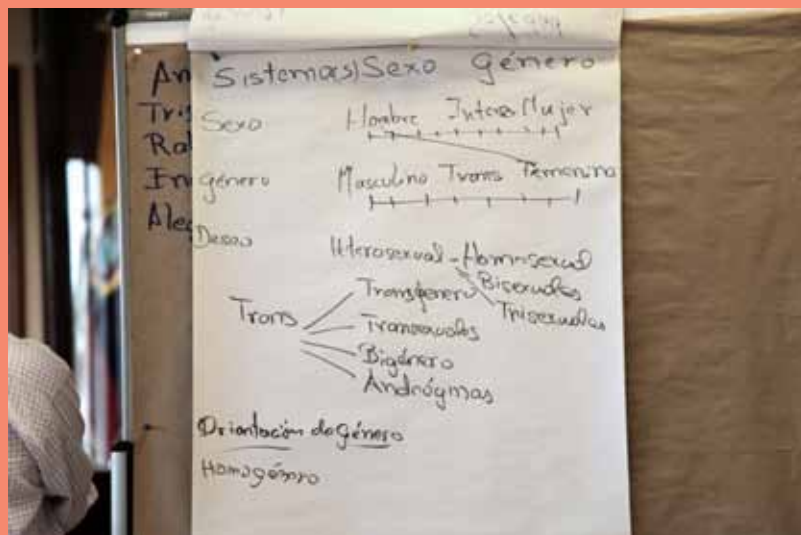 Sistema(s) Sexo Género
Sexo Hombre Inters Mujer
género Masculino Trans Femenino
Deseo Heterosexual - Homosexual
Bisexuales
Trisexuales
Trans
Transgenero
Transexuales
Bigénero
Andróginas
Orientación de género
Homogénero
An
Tris
Ra
In
Aleg